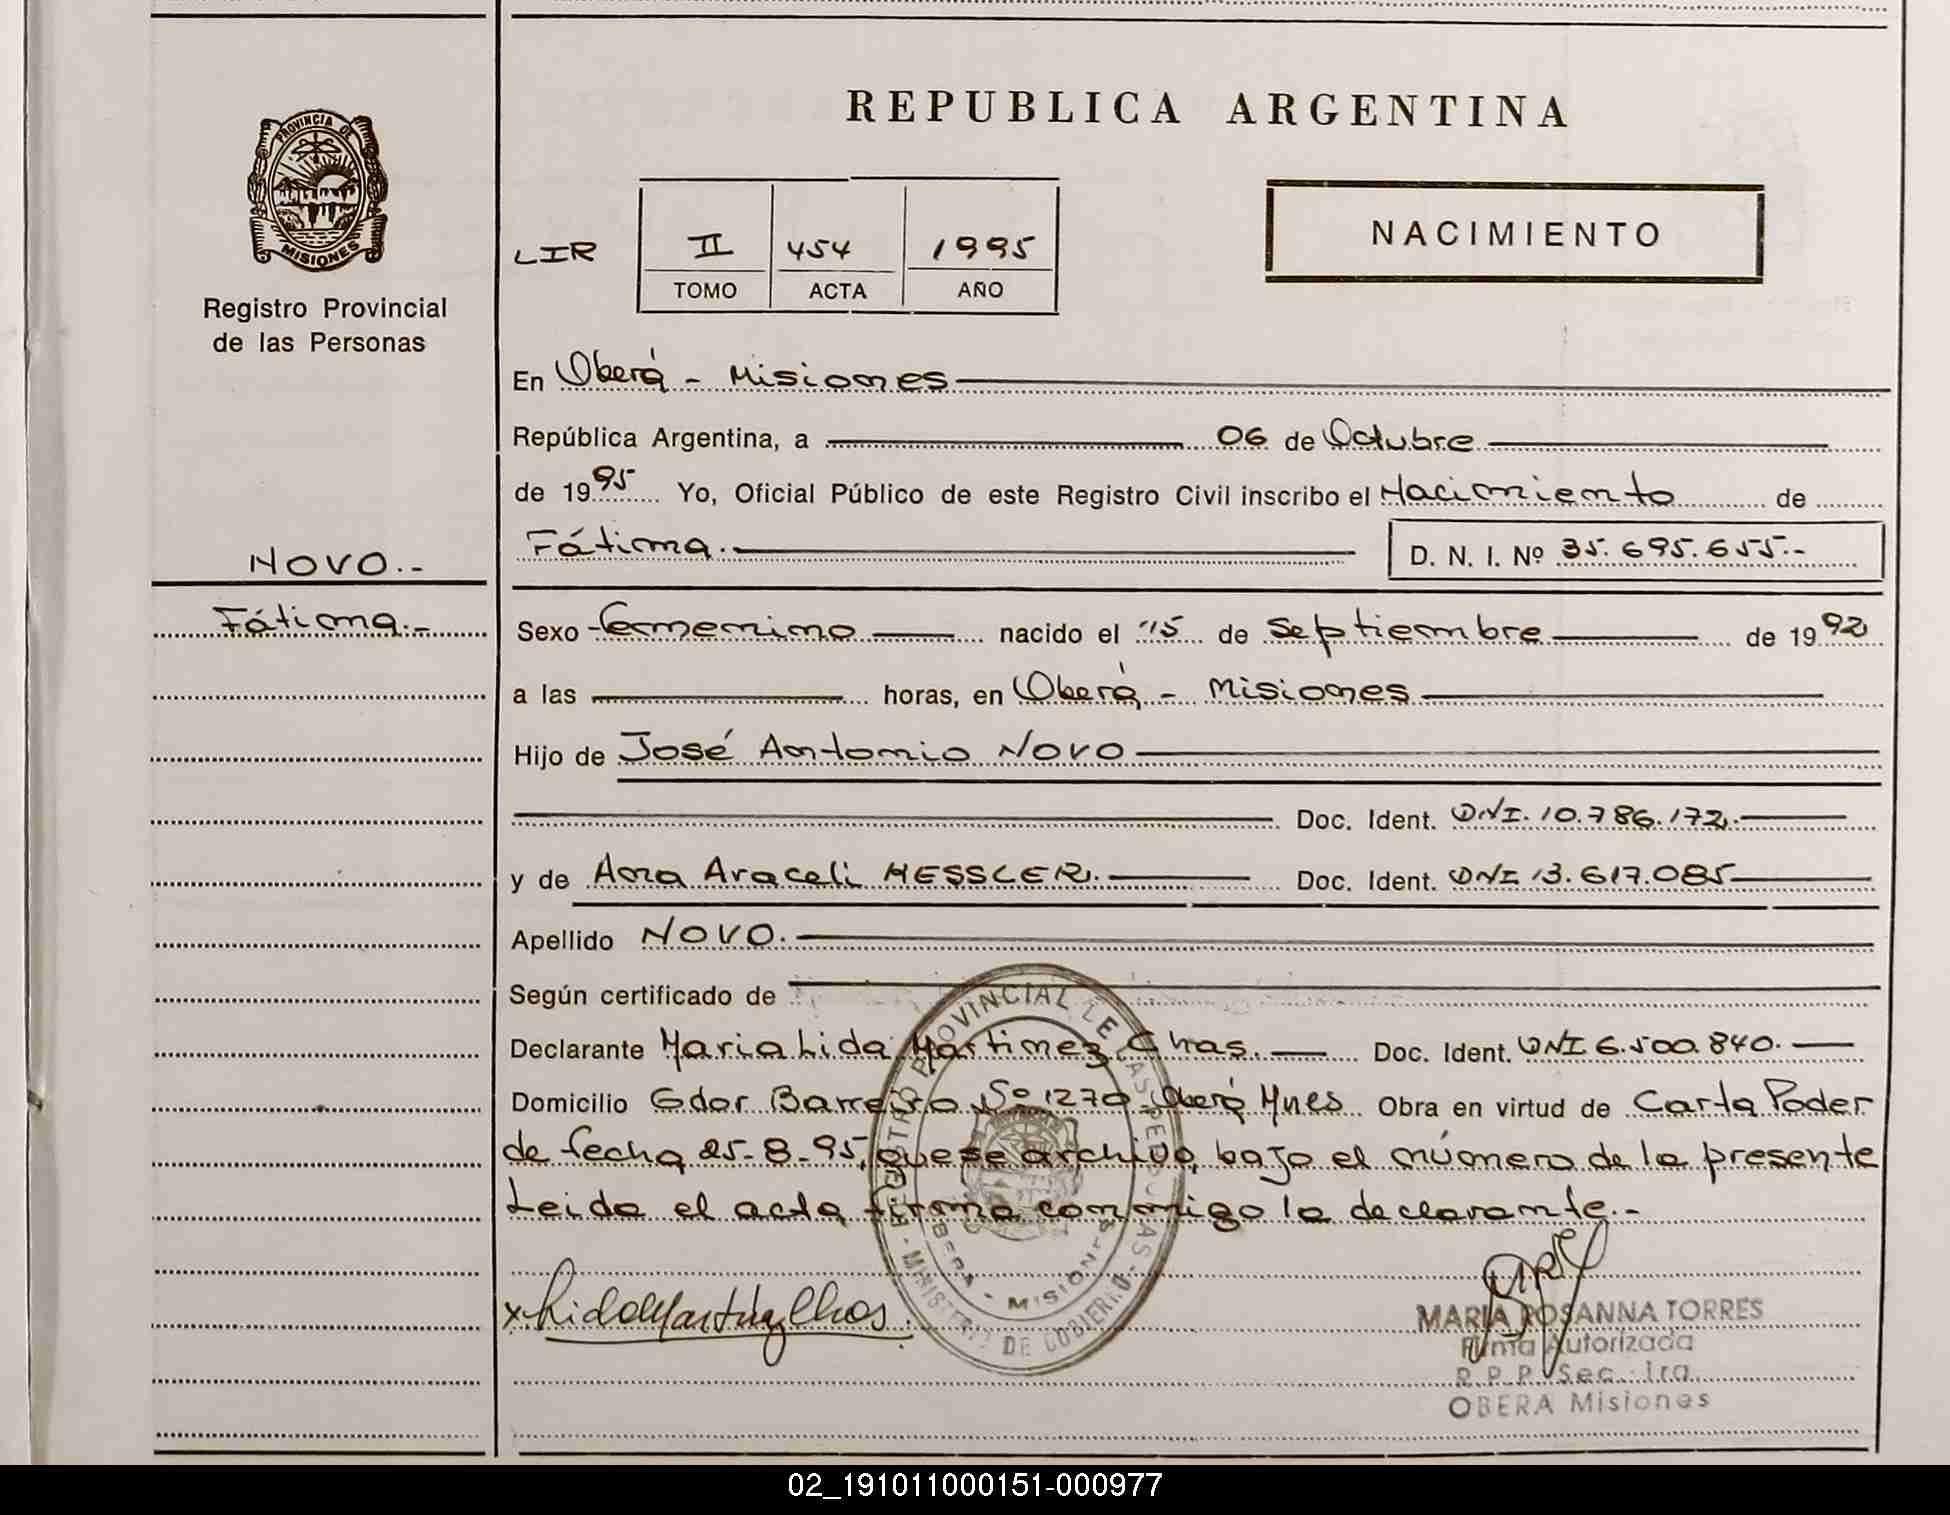 REPUBLICA ARGENTINA
PROVINCIA DE
MISIONES
Registro Provincial
de las Personas
LIR II 454 1995
TOMO ACTA AÑO
NACIMIENTO
En Oberá - Misiones
República Argentina, a 06 de Octubre
de 1995 Yo, Oficial Público de este Registro Civil inscribo el Nacimiento de
Fátima. D. N. I. Nº 35.695.655.-
NOVO.-
Fátima.-
Sexo femenino nacido el 15 de Septiembre de 1992
a las horas, en Oberá - Misiones
Hijo de José Antonio NOVO
Doc. Ident. DNI. 10.786.172.
y de Ana Araceli HESSLER. Doc. Ident. DNI 13.617.085
Apellido NOVO.
Según certificado de
Declarante Maria Lida Martinez Chas. Doc. Ident. DNI 6.500.840.
Domicilio Gdor Barreiro Nº 1270 Oberá Mnes Obra en virtud de Carta Poder
de fecha 25-8-95, que se archiva bajo el número de la presente
Leida el acta firma conmigo la declarante.-
x Lida Martinez Chas
REGISTRO PROVINCIAL DE LAS PERSONAS - MINISTERIO DE GOBIERNO
OBERA - MISIONES
MARIA ROSANNA TORRES
Firma Autorizada
R.P.P. Sec. 1ra.
OBERA Misiones
02_191011000151-000977